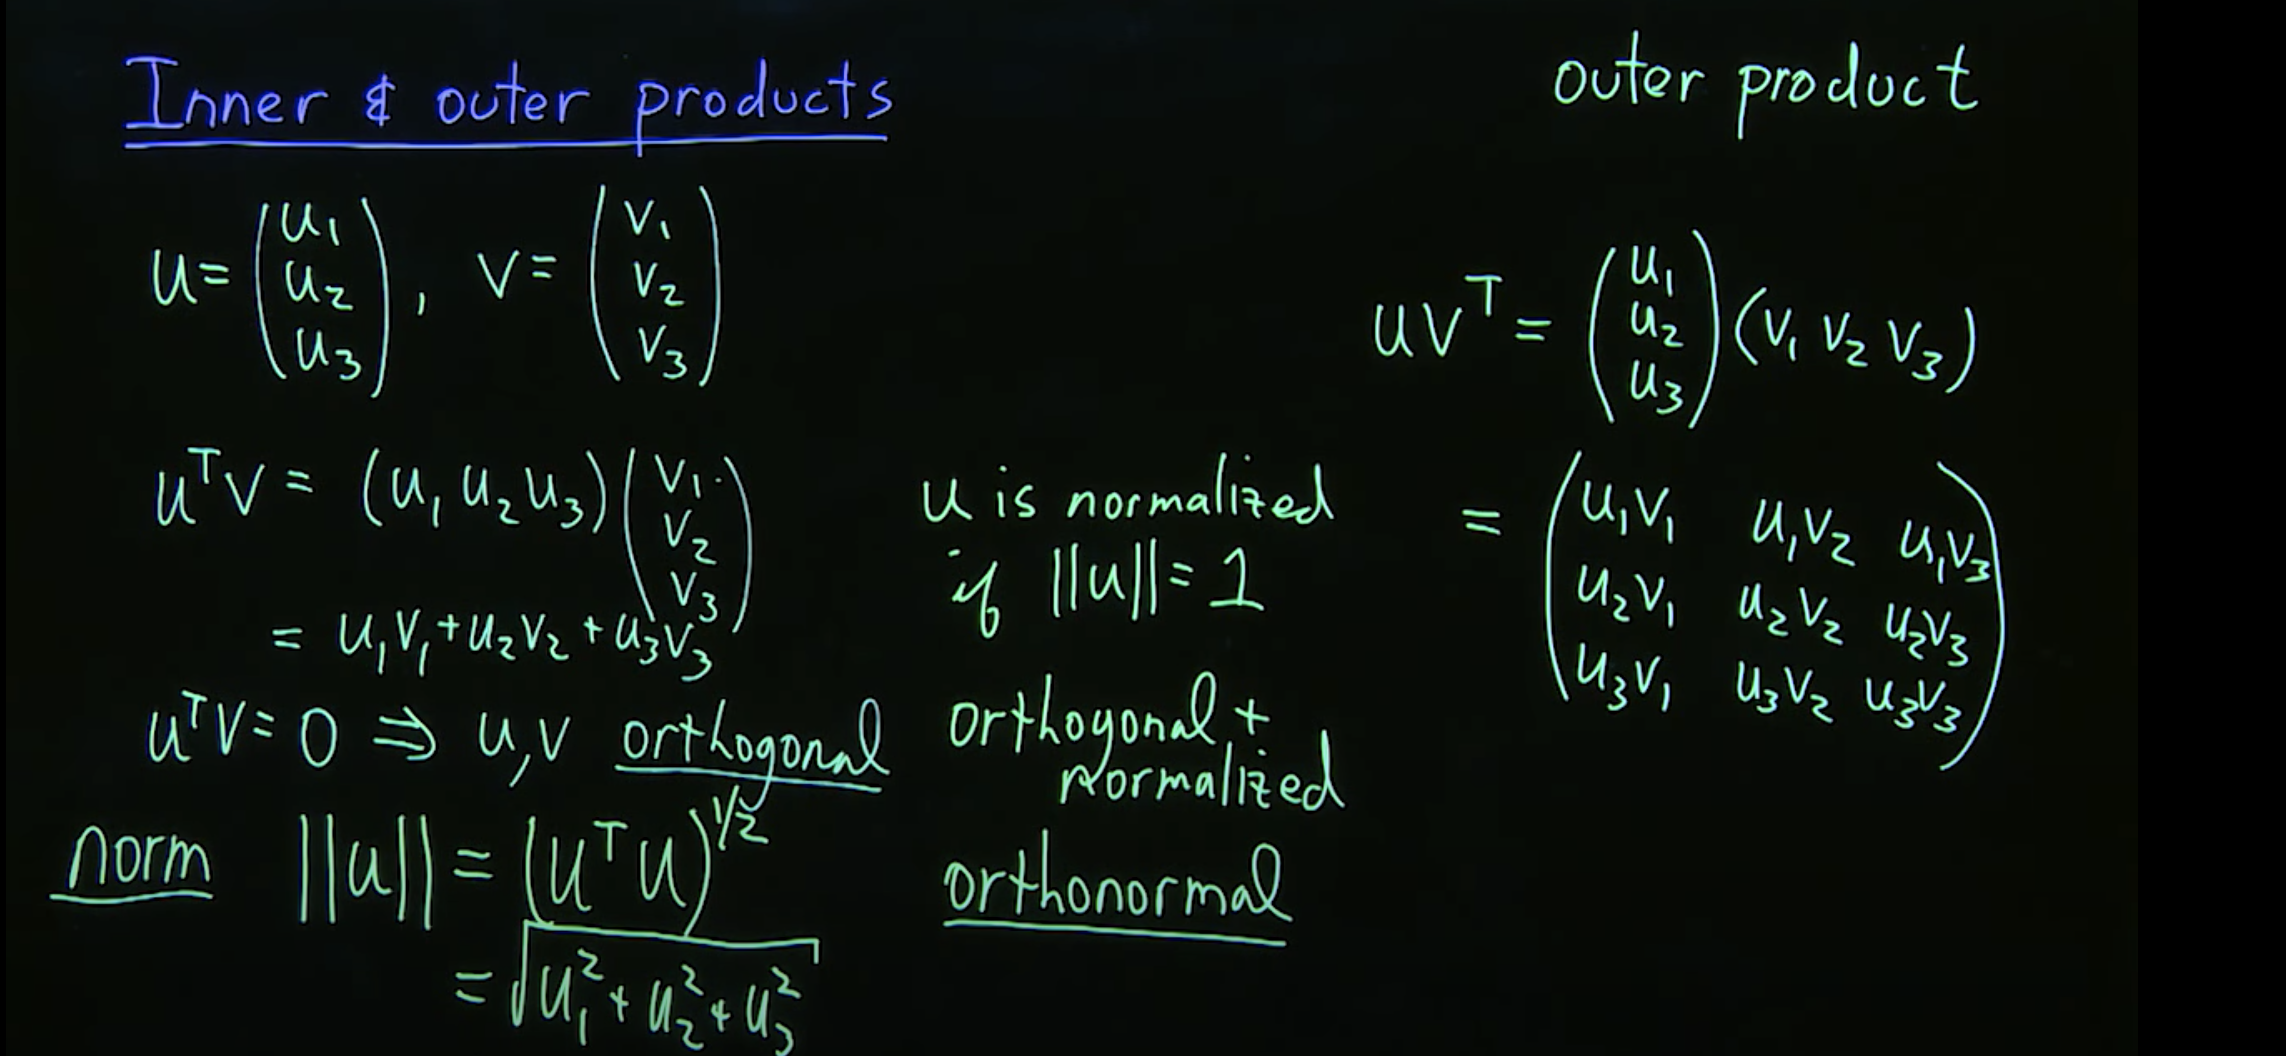 Inner & outer products
u = (u₁ u₂ u₃), v = (v₁ v₂ v₃)
uᵀv = (u₁ u₂ u₃)(v₁ v₂ v₃)
= u₁v₁ + u₂v₂ + u₃v₃
uᵀv = 0 ⇒ u, v orthogonal
norm ||u|| = (uᵀu)^1/2
= √u₁² + u₂² + u₃²
u is normalized
if ||u|| = 1
orthogonal +
normalized
orthonormal
outer product
uvᵀ = (u₁ u₂ u₃)(v₁ v₂ v₃)
= (u₁v₁ u₁v₂ u₁v₃
u₂v₁ u₂v₂ u₂v₃
u₃v₁ u₃v₂ u₃v₃)